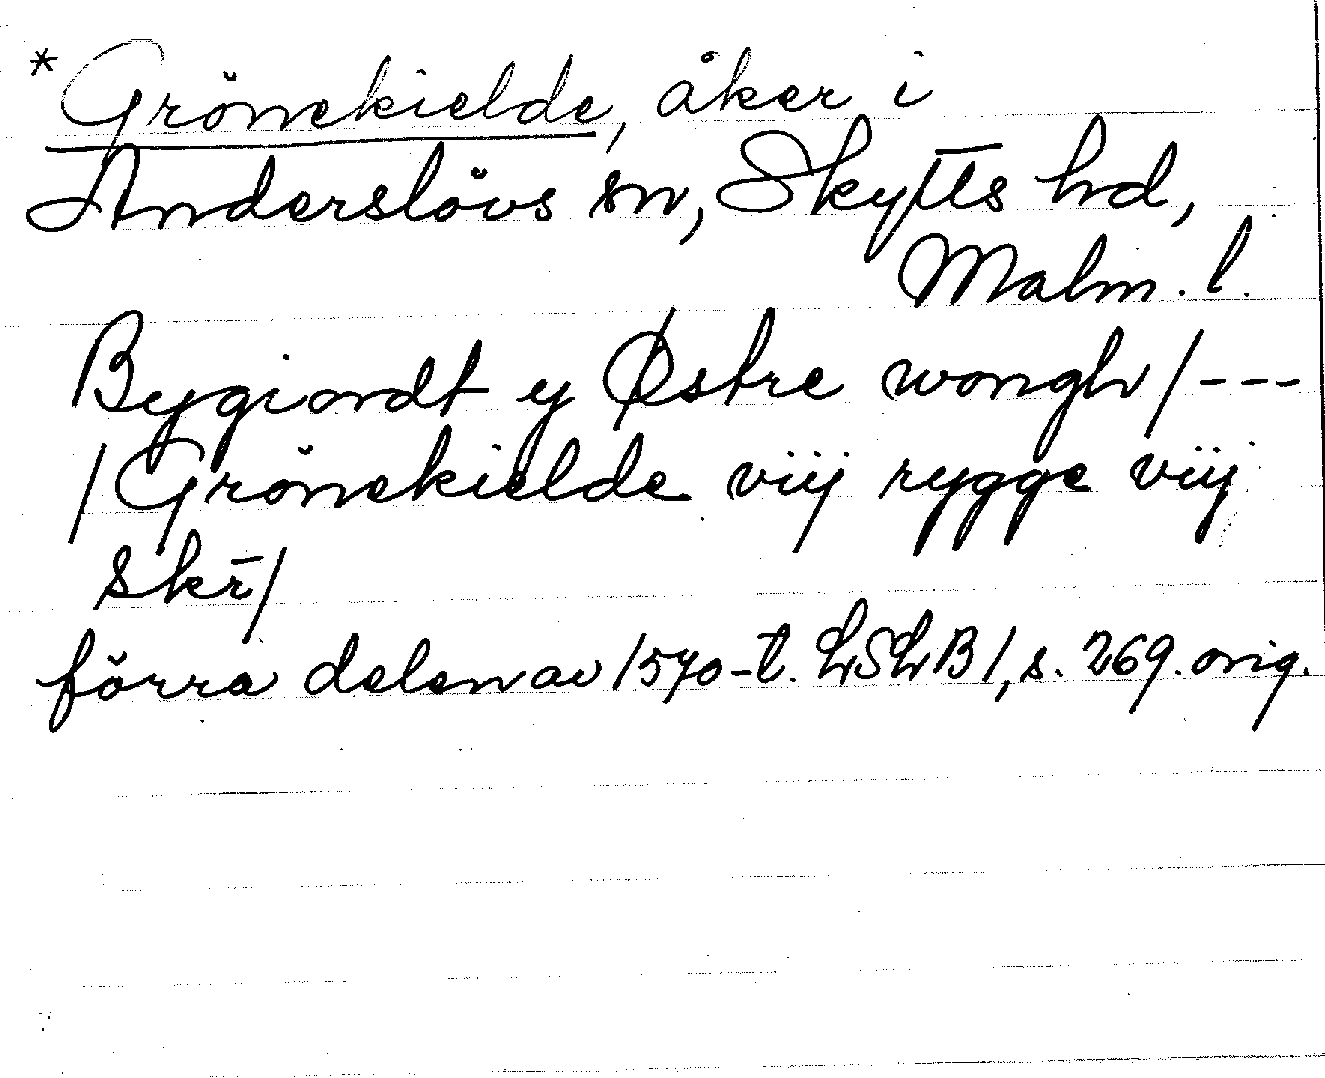 *Grönekielde, åker i
Anderslövs sn, Skytts hd,
Malm. l.
Bygiordt y Østre wongh/---
/Grönekielde viij rygge viij
skr̄/
förra delen av 1570-t. LSLB1, s. 269. orig.